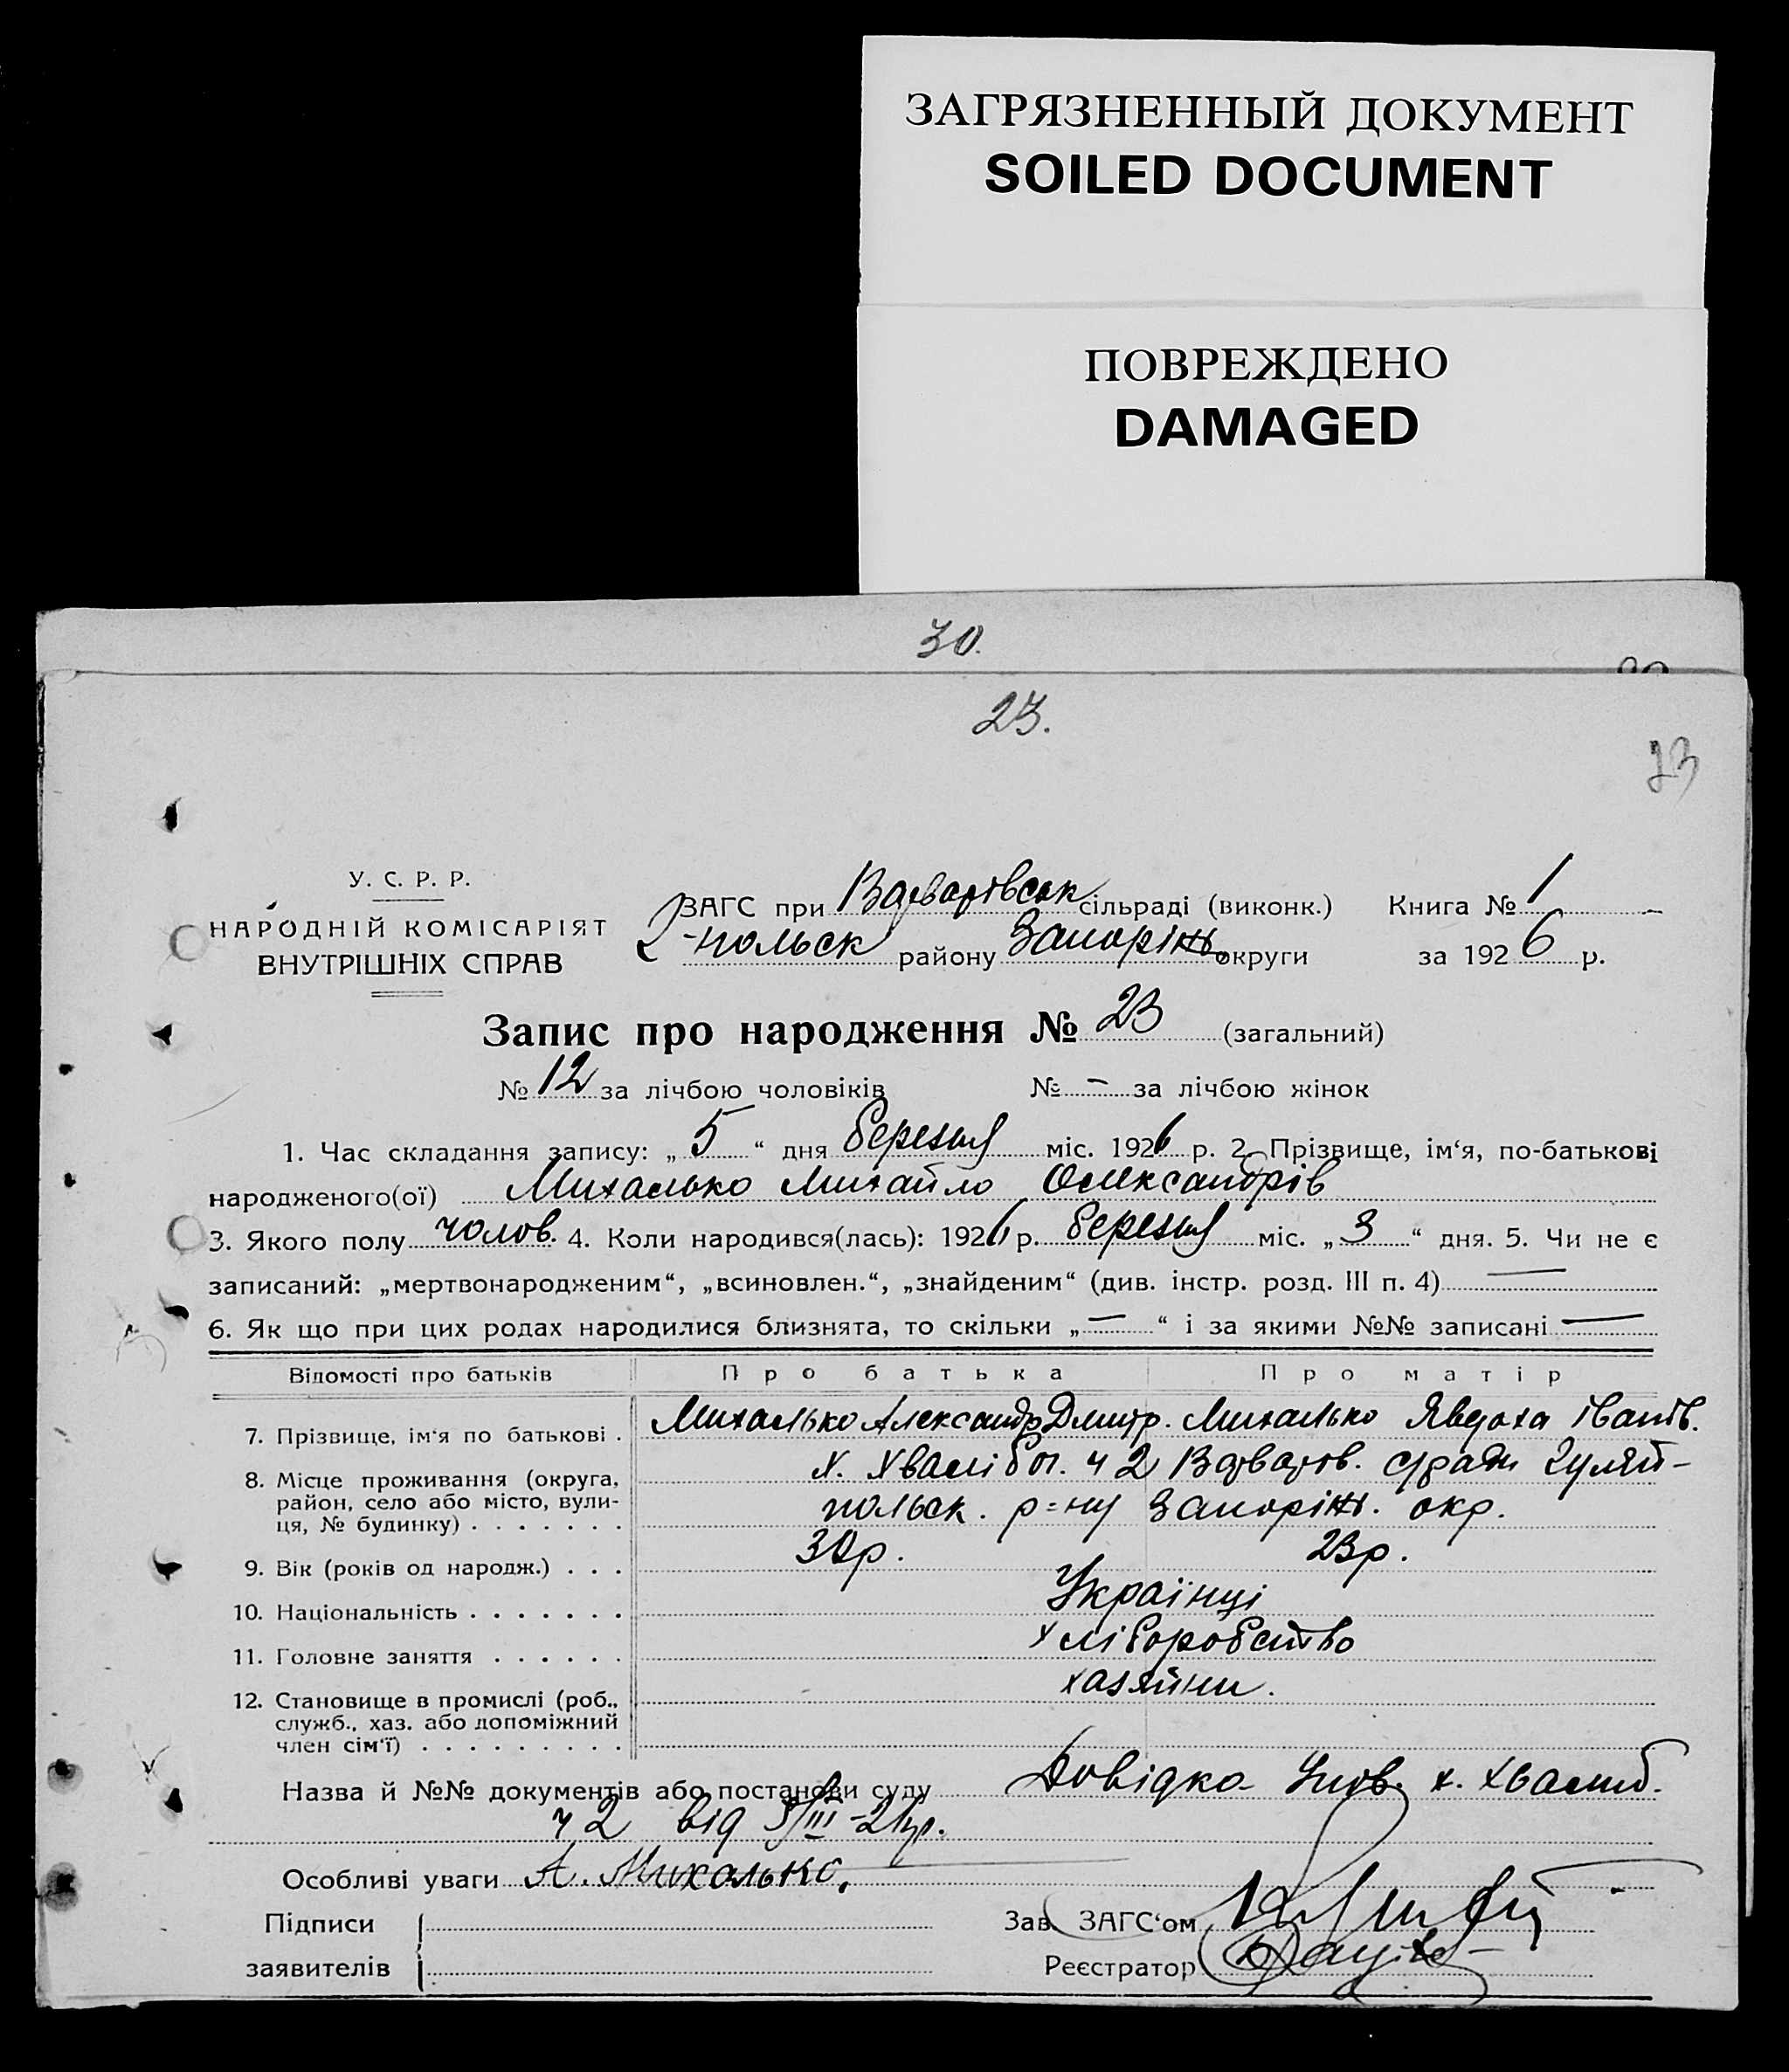 ЗАГРЯЗНЕННЫЙ ДОКУМЕНТ
SOILED DOCUMENT
ПОВРЕЖДЕНО
DAMAGED
30.
23.
23
У. С. Р. Р.
НАРОДНІЙ КОМІСАРІЯТ
ВНУТРІШНІХ СПРАВ
ЗАГС при Варварівськ сільраді (виконк.) Книга № 1
-польск району Запоріж округи за 1926 р.
Запис про народження № 23 (загальний)
№ 12 за лічбою чоловіків № – за лічбою жінок
1. Час складання запису: „ 5 “ дня березня міс. 1926 р. 2. Прізвище, ім‘я, по-батькові
народженого(ої) Михалько Михайло Олександрів
3. Якого полу чолов. 4. Коли народився(лась): 1926 р. березня міс. „ 3 “ дня. 5. Чи не є
записаний: „мертвонародженим“, „всиновлен.“, „знайденим“ (див. інстр. розд. III п. 4) —
6. Як що при цих родах народилися близнята, то скільки „ — “ і за якими №№ записані —
Відомості про батьків Про батька Про матір
7. Прізвище, ім‘я по батькові . Михалько Александр Дмитр. Михалько Явдоха Іванів.
8. Місце проживання (округа, х. Хваліб. ч 2 Варваров. с/ради Гуляй-
район, село або місто, вули- польск. р=ну Запоріж. окр.
ця, № будинку) . . . . . . .
9. Вік (років од народж.) . . . 30р. 23р.
10. Національність . . . . . . . Українці
11. Головне заняття . . . . . . хліборобство
12. Становище в промислі (роб., хазяйни.
служб., хаз. або допоміжний
член сім‘ї) . . . . . . . . .
Назва й №№ документів або постанови суду Довідка Упов. х. Хвалиб.
ч 2 від 5/III-26р.
Особливі уваги А. Михалько.
Підписи Зав. ЗАГС‘ом
заявителів Реєстратор